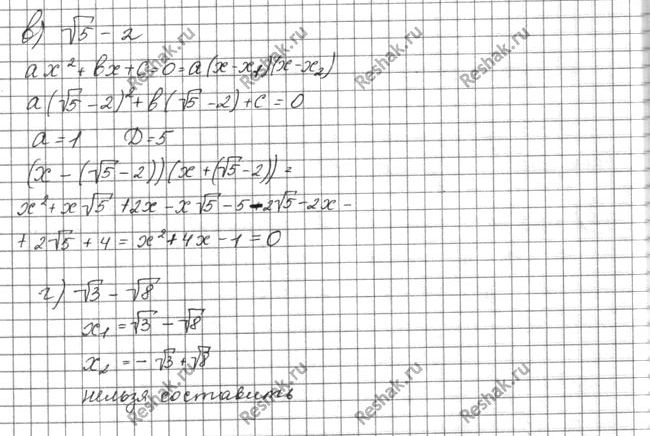 в) √5 − 2
ax² + bx + c = 0 = a(x − x₁)(x − x₂)
a(√5 − 2)² + b(√5 − 2) + c = 0
a = 1 D = 5
(x − (√5 − 2))(x + (√5 − 2)) =
x² + x√5 + 2x − x√5 − 5 − 2√5 − 2x −
+ 2√5 + 4 = x² + 4x − 1 = 0
г) √3 − √8
x₁ = √3 − √8
x₂ = − √3 + √8
нельзя составить
Reshak.ru
Reshak.ru
Reshak.ru
Reshak.ru
Reshak.ru
Reshak.ru
Reshak.ru
Reshak.ru
Reshak.ru